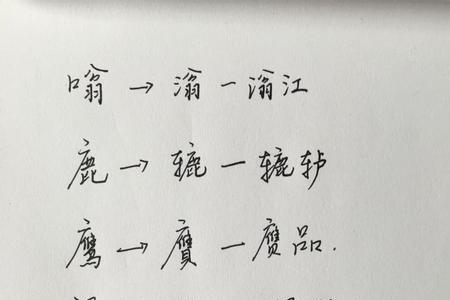 嗡 → 滃 — 滃江
鹿 → 辘 — 辘轳
鹰 → 赝 — 赝品.